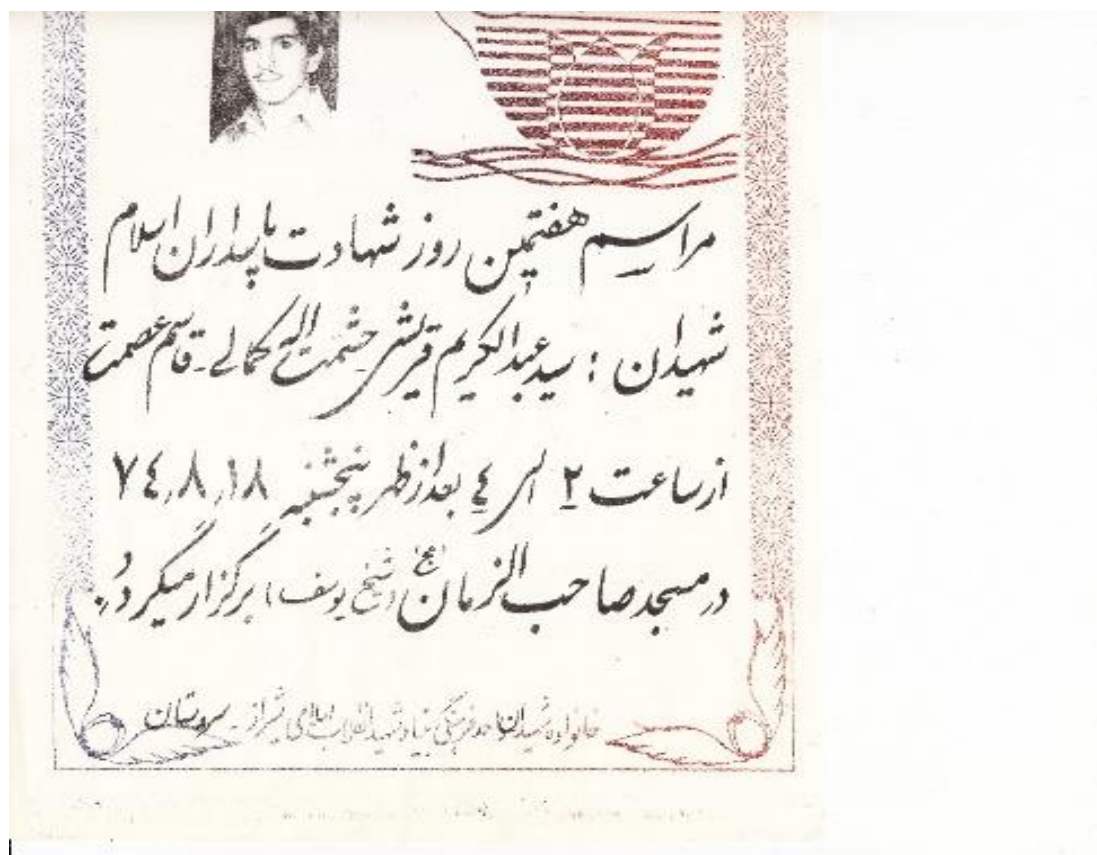 مراسم هفتمین روز شهادت پاسداران اسلام
شهیدان : سید عبدالکریم قریشی حشمت اله کمالی - قاسم عصمتی
از ساعت ۲ الی ٤ بعدازظهر پنجشنبه ۷٤٫۸٫۱۸
در مسجد صاحب الزمان (عج) (شیخ یوسف) برگزار میگردد.
خانواده شهیدان واحد فرهنگی بنیاد شهید انقلاب اسلامی شیراز - سروستان